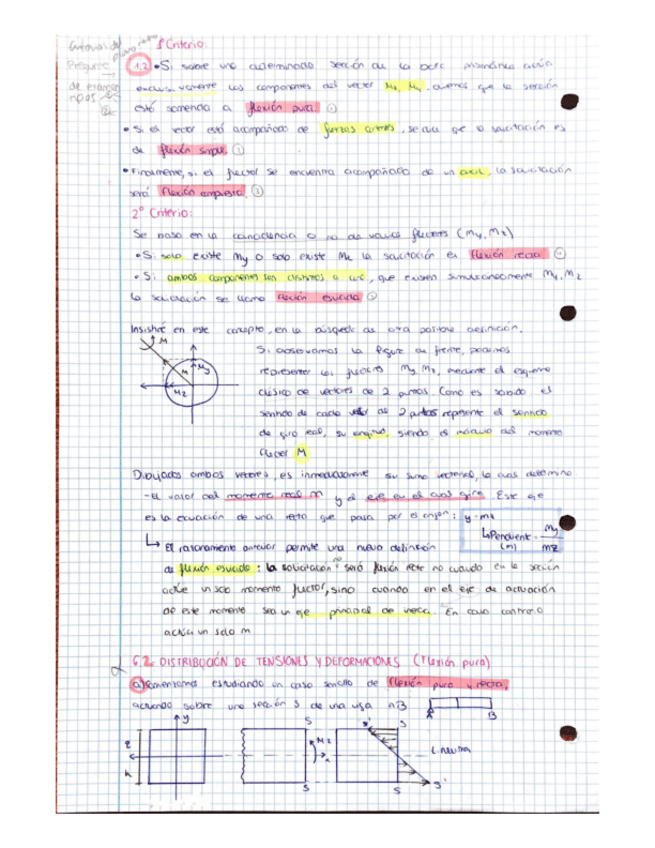 1º Criterio:
Pregunta
de examen
1.2 • Si sobre una determinada sección de la barra prismática actúa
exclusivamente los componentes del vector la sección
está sometida a flexión pura. ①
• Si el vector está acompañado de fuerzas, se dice que la solicitación es
de flexión simple. ②
• Finalmente, si el flector se encuentra acompañado de un axil, la solicitación
será flexión compuesta. ③
2º Criterio:
Se basa en la coincidencia o no de varios flectores (My, Mz)
• Si solo existe My o solo existe Mz la solicitación es flexión recta
• Si ambos componentes son distintos a, que existen simultáneamente My, Mz
la solicitación se llama flexión esviada
Insistiré en este concepto, en la búsqueda de otra posible definición.
Si observamos la figura de frente, podemos
representar los flectores My, Mz, mediante el esquema
clásico de vectores de 2 puntas. Como es sabido el
sentido de cada de 2 puntas representa el sentido
de giro real, su, siendo el módulo del momento
flector M
M
My
M
Mz
Dibujados ambos vectores, es inmediatamente su suma vectorial, la cual determina
- el valor del momento real M y el eje en el cual gira. Este eje
es la ecuación de una recta que pasa por el origen:
Pendiente = My
(m) Mz
↳ El razonamiento anterior permite una nueva definición
de flexión esviada: la solicitación no será flexión recta no cuando en la sección
actúe un solo momento flector, sino cuando en el eje de actuación
de este momento sea un eje principal de inercia. En caso contrario
actúa un solo m
6.2. DISTRIBUCIÓN DE TENSIONES Y DEFORMACIONES (Flexión pura)
a) Comentamos estudiando un caso sencillo de flexión pura y recta,
actuando sobre una sección S de una viga AB
A B
y
z
h
S
S
Mz
S
S
S'
L. neutra